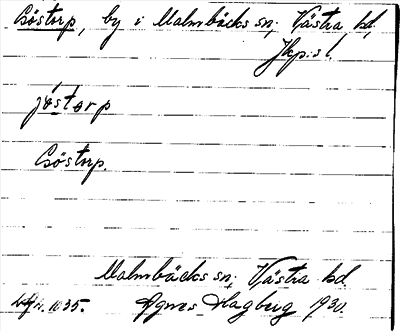 Esöstorp, by i Malmbäcks sn, Västra hd,
Jkp:s l.
jóstorp
Esöstorp.
Malmbäcks sn, Västra hd.
1635. Agnes Hagberg 1930.